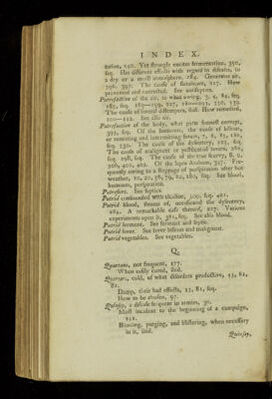 INDEX.
tation, 190. Yet strongly excites fermentation, 350,
seq. Has different effects with regard to diseases, in
a dry or a moist atmosphere, 184. Generates air,
396, 397. The cause of fermentation, 127. How
prevented and corrected. See antiseptics.
Putrefaction of the air, to what owing, 3, 4, 84, seq.
The cause of several distempers, ibid. How remedied,
See also air.
Putrefaction of the body, what parts soonest corrupt,
393, seq. Of the humours, the cause of bilious,
or remitting and intermitting fevers, 7, 8, 83, 180,
seq. 330. The cause of the dysentery, 253, seq.
The cause of malignant or pestilential fevers, 286,
seq. 298, seq. The cause of the true scurvy, 8, 9,
quently owing to a stoppage of perspiration after hot
weather, seq. See blood,
humours, perspiration.
Putrefiers. See septics.
Putrid compounded with alcaline, 309, seq.
Putrid blood, steams of, occasioned the dysentery,
A remarkable case thereof, 257. Various
experiments upon it, 381, seq. See also blood.
Putrid ferment. See ferment and septic.
Putrid fever. See fever bilious and malignant.
Putrid vegetables. See vegetables.
Q.
Quartans, not frequent, 177.
When easily cured, ibid.
Quarters, cold, of what disorders productive, 13, 82,
Damp, their bad effects, 13, 82, seq.
How to be chosen, 97.
Quinsey, a disease frequent in armies, 30.
Most incident to the beginning of a campaign,
Bleeding, purging, and blistering, when necessary
in it, ibid.
Quinsey,